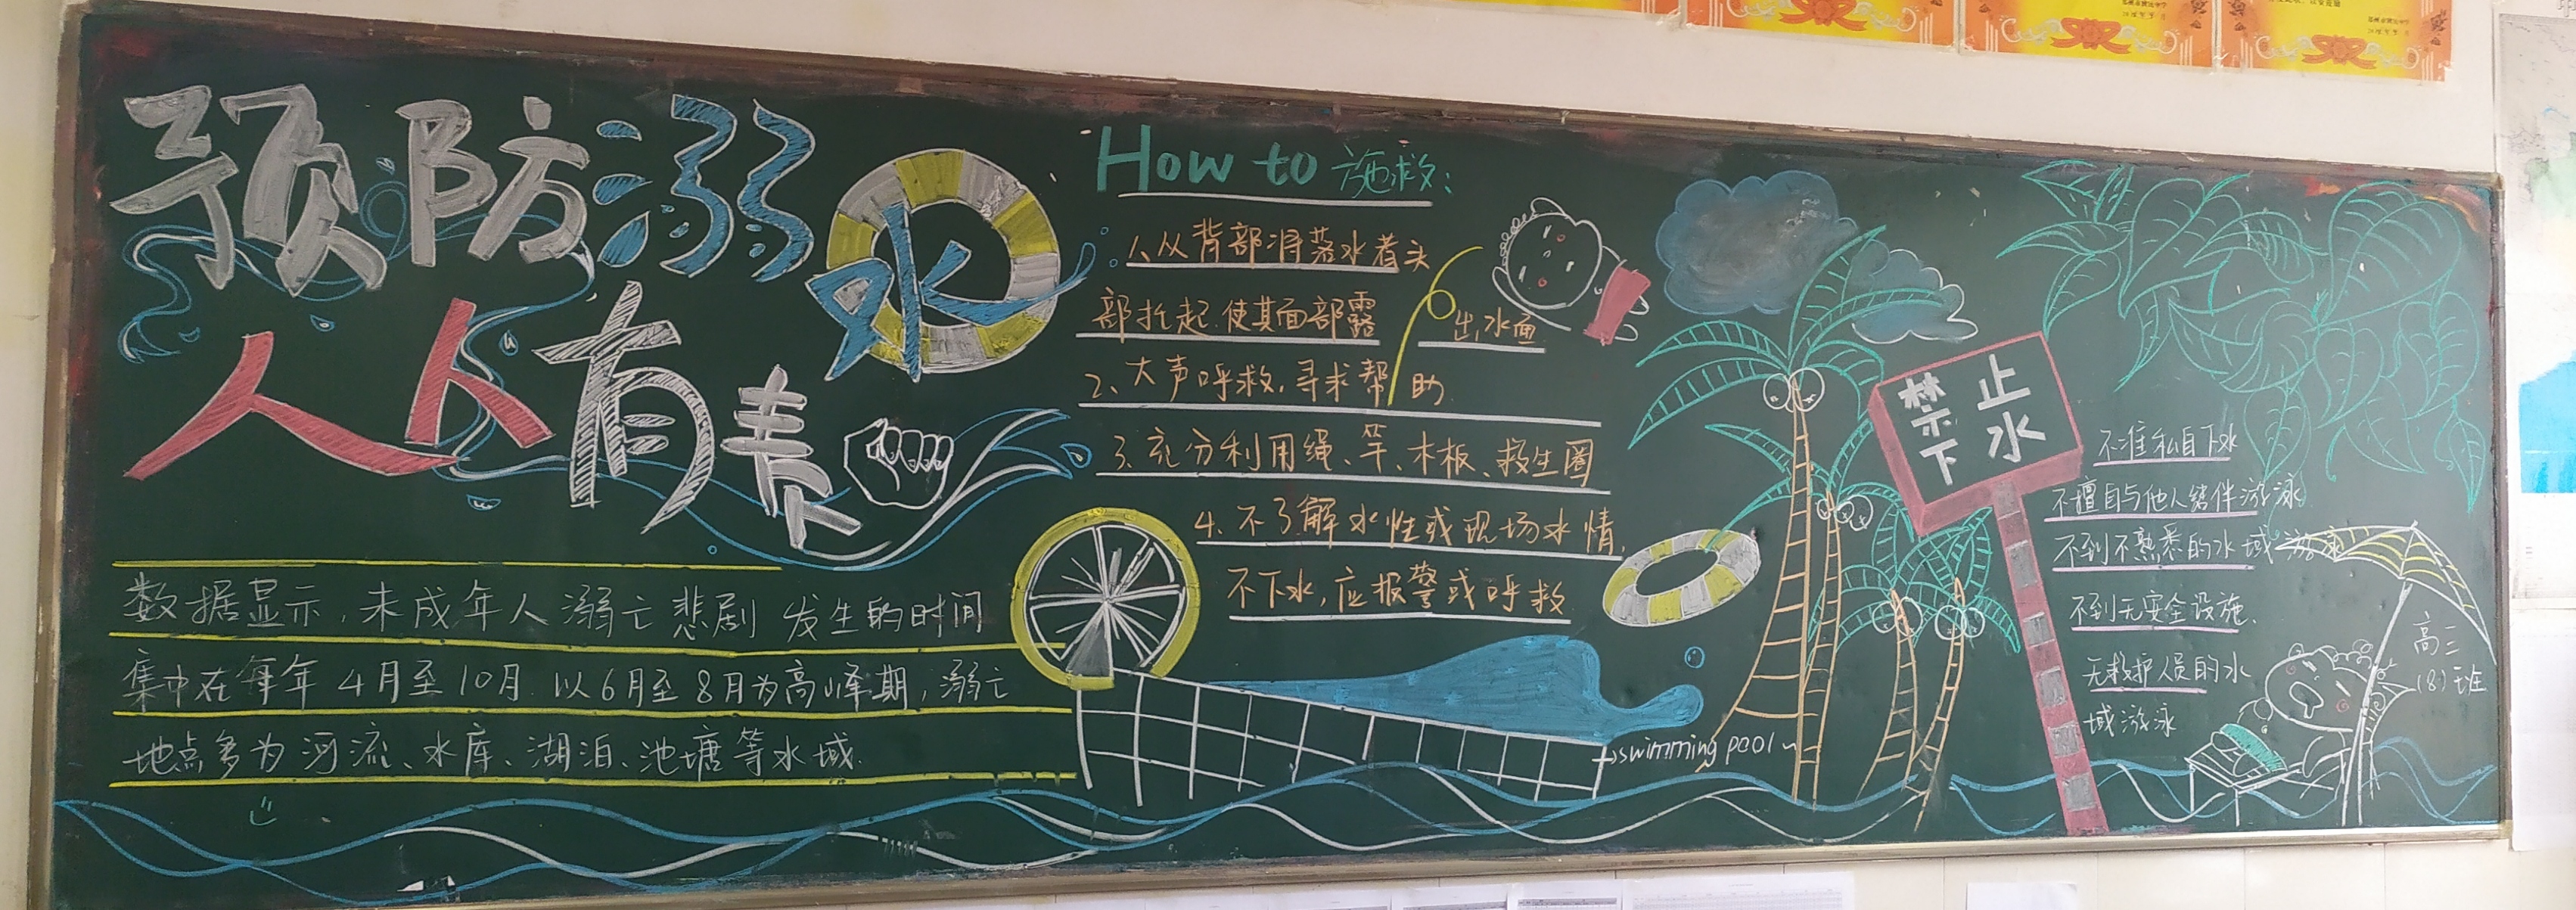 预防溺水
人人有责
数据显示,未成年人溺亡悲剧 发生的时间
集中在每年4月至10月.以6月至8月为高峰期,溺亡
地点多为河流、水库、湖泊、池塘等水域.
How to 施救:
1、从背部将落水者头
部托起.使其面部露 出水面
2、大声呼救,寻求帮助.
3、充分利用绳、竿、木板、救生圈
4、不了解水性或现场水情,
不下水,应报警或呼救
swimming pool
禁止
下水
不准私自下水
不擅自与他人结伴游泳
不到不熟悉的水域游泳
不到无安全设施、
无救护人员的水
域游泳
高三
(8)班